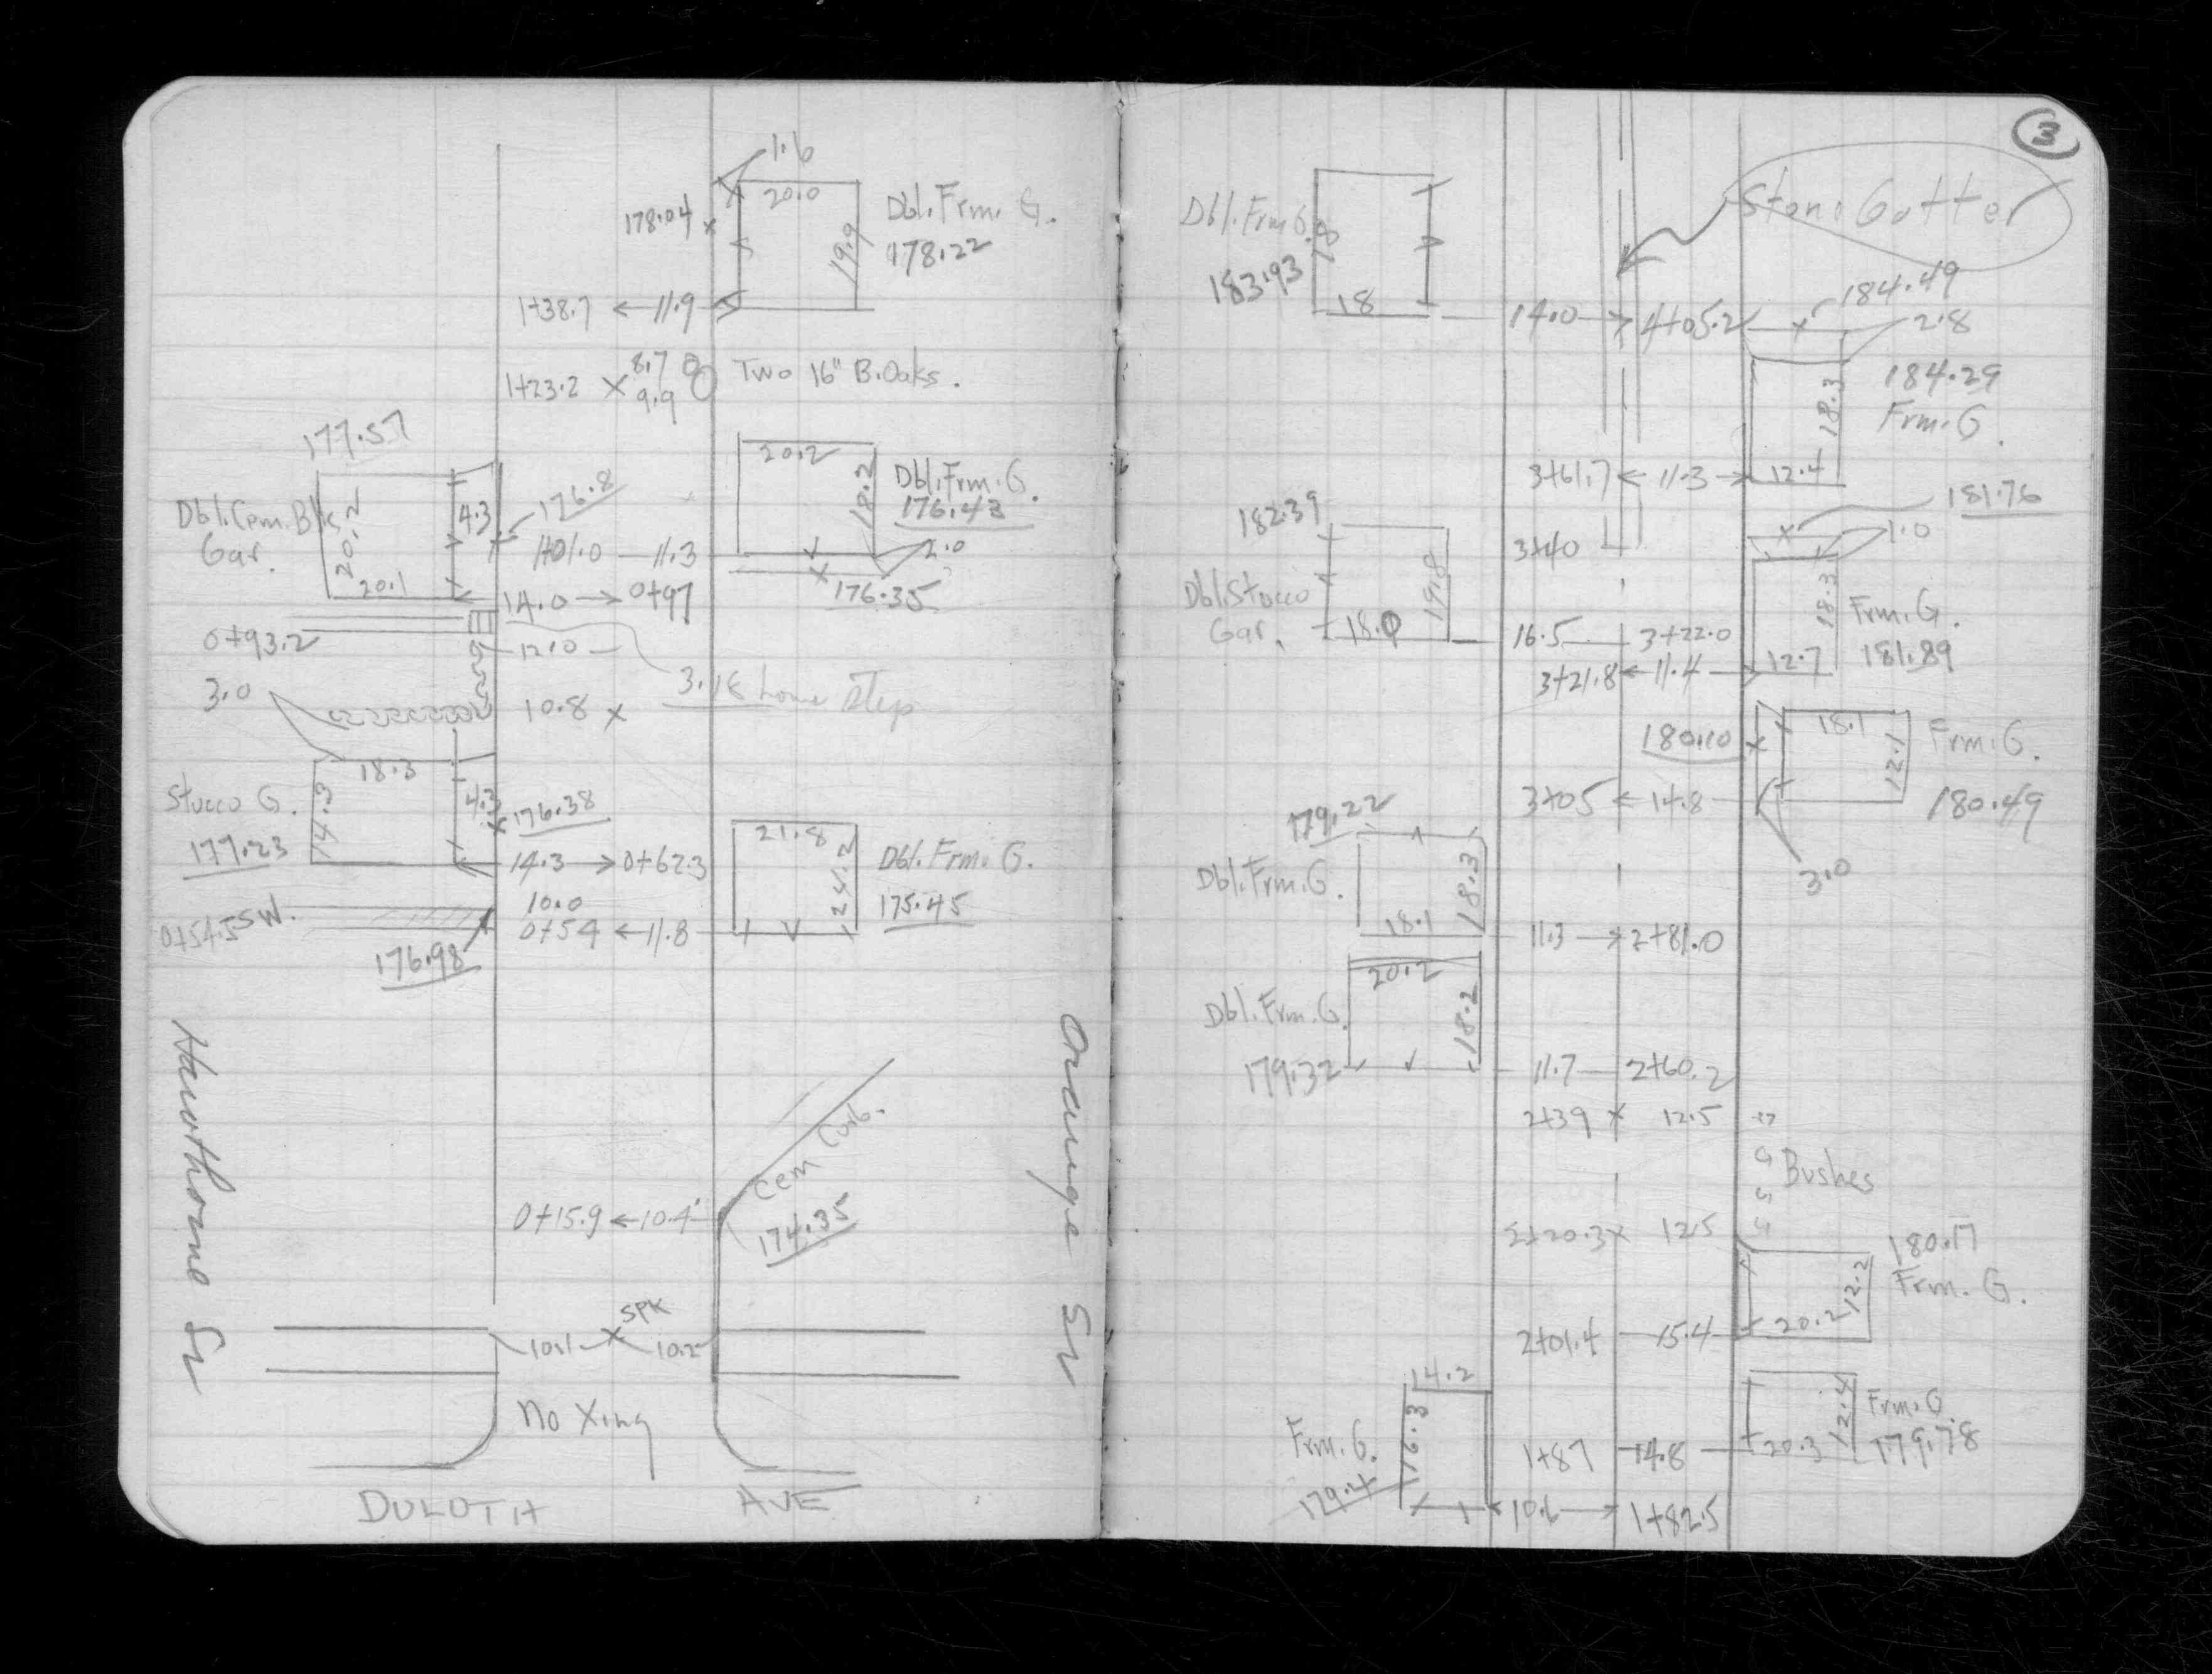 1.6
20.0
178.04
19.9
Dbl. Frm. G.
178.22
1+38.7 ← 11.9
8.7
1+23.2
9.9
Two 16" B.Oaks.
177.57
20.2
18.2
Dbl. Frm. G.
176.43
Dbl. Cem. Blk.
Gar.
20.2
4.3
176.8
1+01.0 11.3
2.0
20.1
14.0 → 0+97
176.35
0+93.2
12.0
3.0
10.8
Step
18.3
Stucco G.
14.3
176.38
177.23
21.8
24.2
Dbl. Frm. G.
14.3 → 0+62.3
10.0
175.45
0+54.5 SW.
0+54 ← 11.8
176.98
Hawthorne St
Orange St
Cem Curb.
0+15.9 ← 10.4
174.35
SPK
10.1
10.2
No Xing
DULUTH AVE
3
Stone Gutter
Dbl. Frm. G.
18
183.93
18
14.0 → 4+05.2
184.49
2.8
18.3
184.29
Frm. G.
3+61.7 ← 11.3 →
12.4
182.39
181.76
3+40
1.0
Dbl. Stucco
Gar.
19.8
18.0
16.5 3+22.0
18.3
Frm. G.
181.89
3+21.8 ← 11.4
12.7
180.10
18.1
12.1
Frm. G.
180.49
3+05 ← 14.8
179.22
3.0
Dbl. Frm. G.
18.3
18.1
11.3 → 2+81.0
20.2
Dbl. Frm. G.
18.2
179.32
11.7 2+60.2
2+39 12.5
Bushes
2+20.3 12.5
180.17
Frm. G.
12.2
20.2
2+01.4 15.4
14.2
Frm. G.
16.3
12.4
Frm. G
179.78
1+87 14.8
20.3
179.4
10.6 → 1+82.5